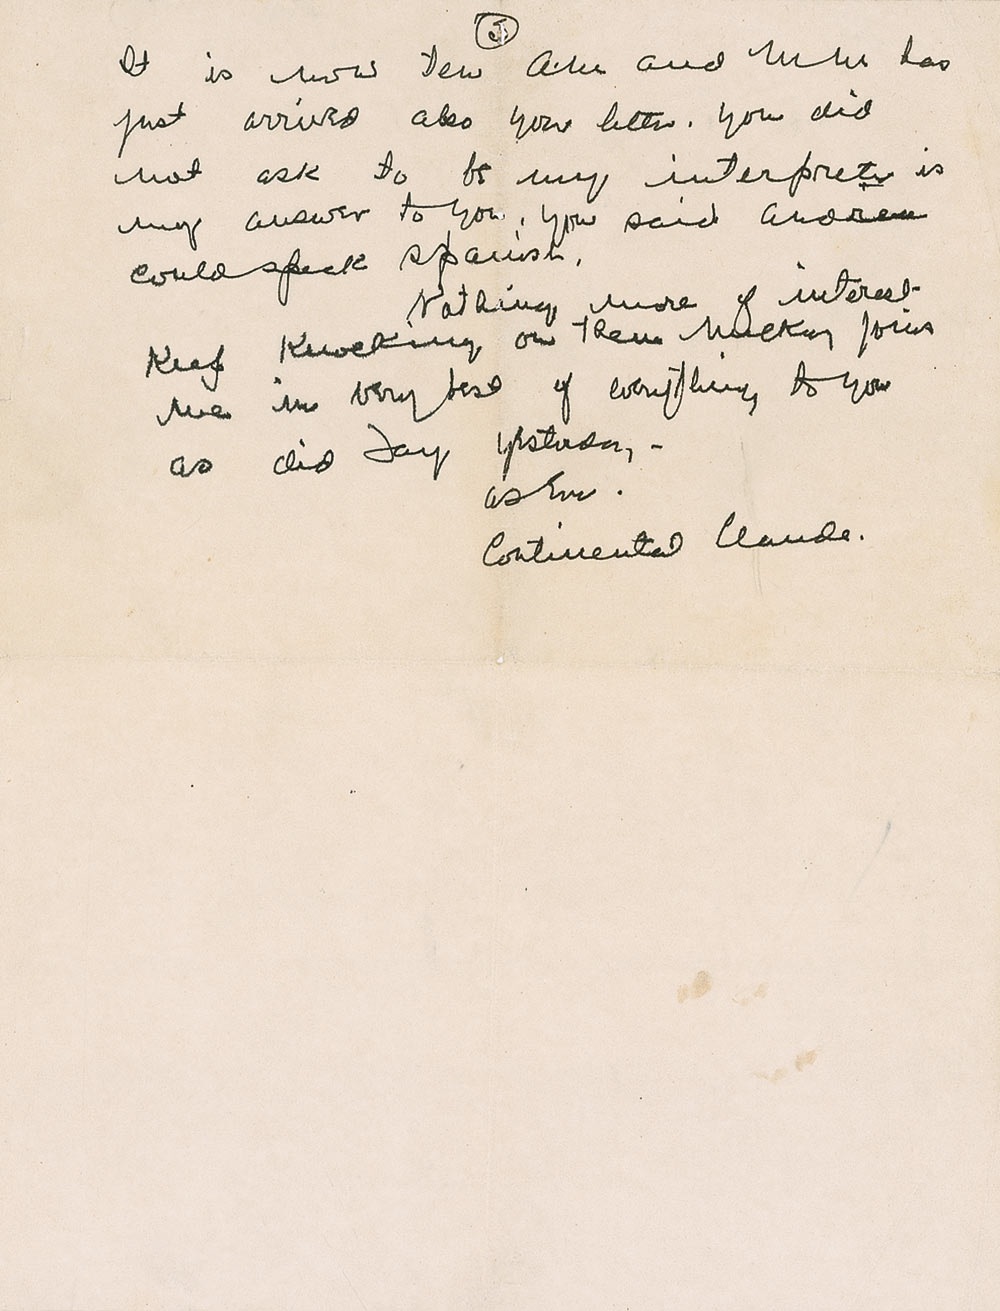 5
It is now ten A.M. and has
just arrived also your letter. You did
not ask to be my interpreter is
my answer to you. You said Andrew
could speak Spanish.
Nothing more of interest
Keep Knocking on them Mackay joins
me in very best of everything to you
as did Jay yesterday, -
as Ever.
Continental Claude.